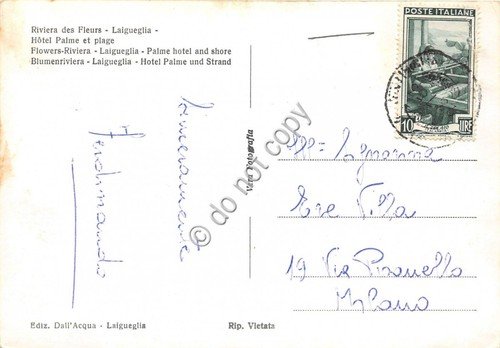 Riviera des Fleurs - Laigueglia -
Hôtel Palme et plage
Flowers-Riviera - Laigueglia - Palme hotel and shore
Blumenriviera - Laigueglia - Hotel Palme und Strand
POSTE ITALIANE
10
LIRE
Sinceramente
Ferdinando
Vera Fotografia
© do not copy
Signorina
Villa
19 Via Pisanello
Milano
Ediz. Dall'Acqua - Laigueglia
Rip. Vietata